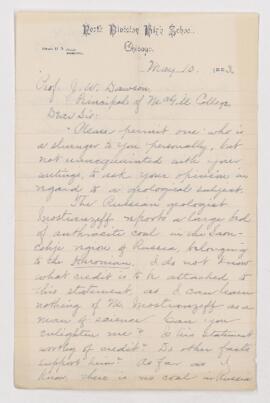 North Division High School.
Chicago,
May 10, 1883.
Prof. J. W. Dawson,
Principal of McGill College
Dear Sir:
Please permit one who is
a stranger to you personally, but
not unacquainted with your
writings, to ask your opinion in
regard to a geological subject.
The Russian geologist
reports a large bed
of anthracite coal in the
region of Russia, belonging
to the Huronian. I do not know
what credit is to be attached to
this statement, as I can learn
nothing of Mr. as a
man of science. Can you
enlighten me? Is his statement
worthy of credit? Do other facts
support him? As far as I
know, there is no coal in Russia